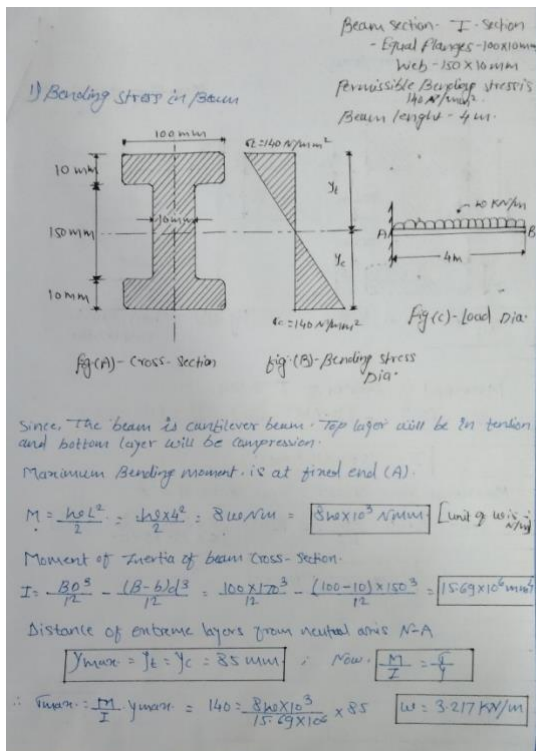 Beam section - I - section
- Equal Flanges - 100x10mm
Web - 150 x 10 mm
Permissible Bending stress is
140 N/mm²
Beam lenght - 4 m.
1) Bending stress in Beam
100 mm
10 mm
150 mm
10 mm
10mm
σt = 140 N/mm²
yt
yc
σc = 140 N/mm²
KN/m
A
B
4m
fig(A) - Cross - section
fig.(B) - Bending stress
Dia.
fig(c) - Load Dia.
Since, The beam is cantilever beam. Top layer will be in tension
and bottom layer will be compression.
Maximum Bending moment is at fixed end (A).
M = wL²/2 = w x 4²/2 = 8w Nm = 8w x 10³ Nmm [unit of w is N/m]
Moment of Inertia of beam cross-section.
I = BD³/12 - (B-b)d³/12 = 100 x 170³/12 - (100-10) x 150³/12 = 15.69 x 10⁶ mm⁴
Distance of extreme layers from neutral axis N-A
ymax = yt = yc = 85 mm ; Now. M/I = σ/y
∴ σmax = M/I . ymax = 140 = 8w x 10³/15.69 x 10⁶ x 85 w = 3.217 KN/m